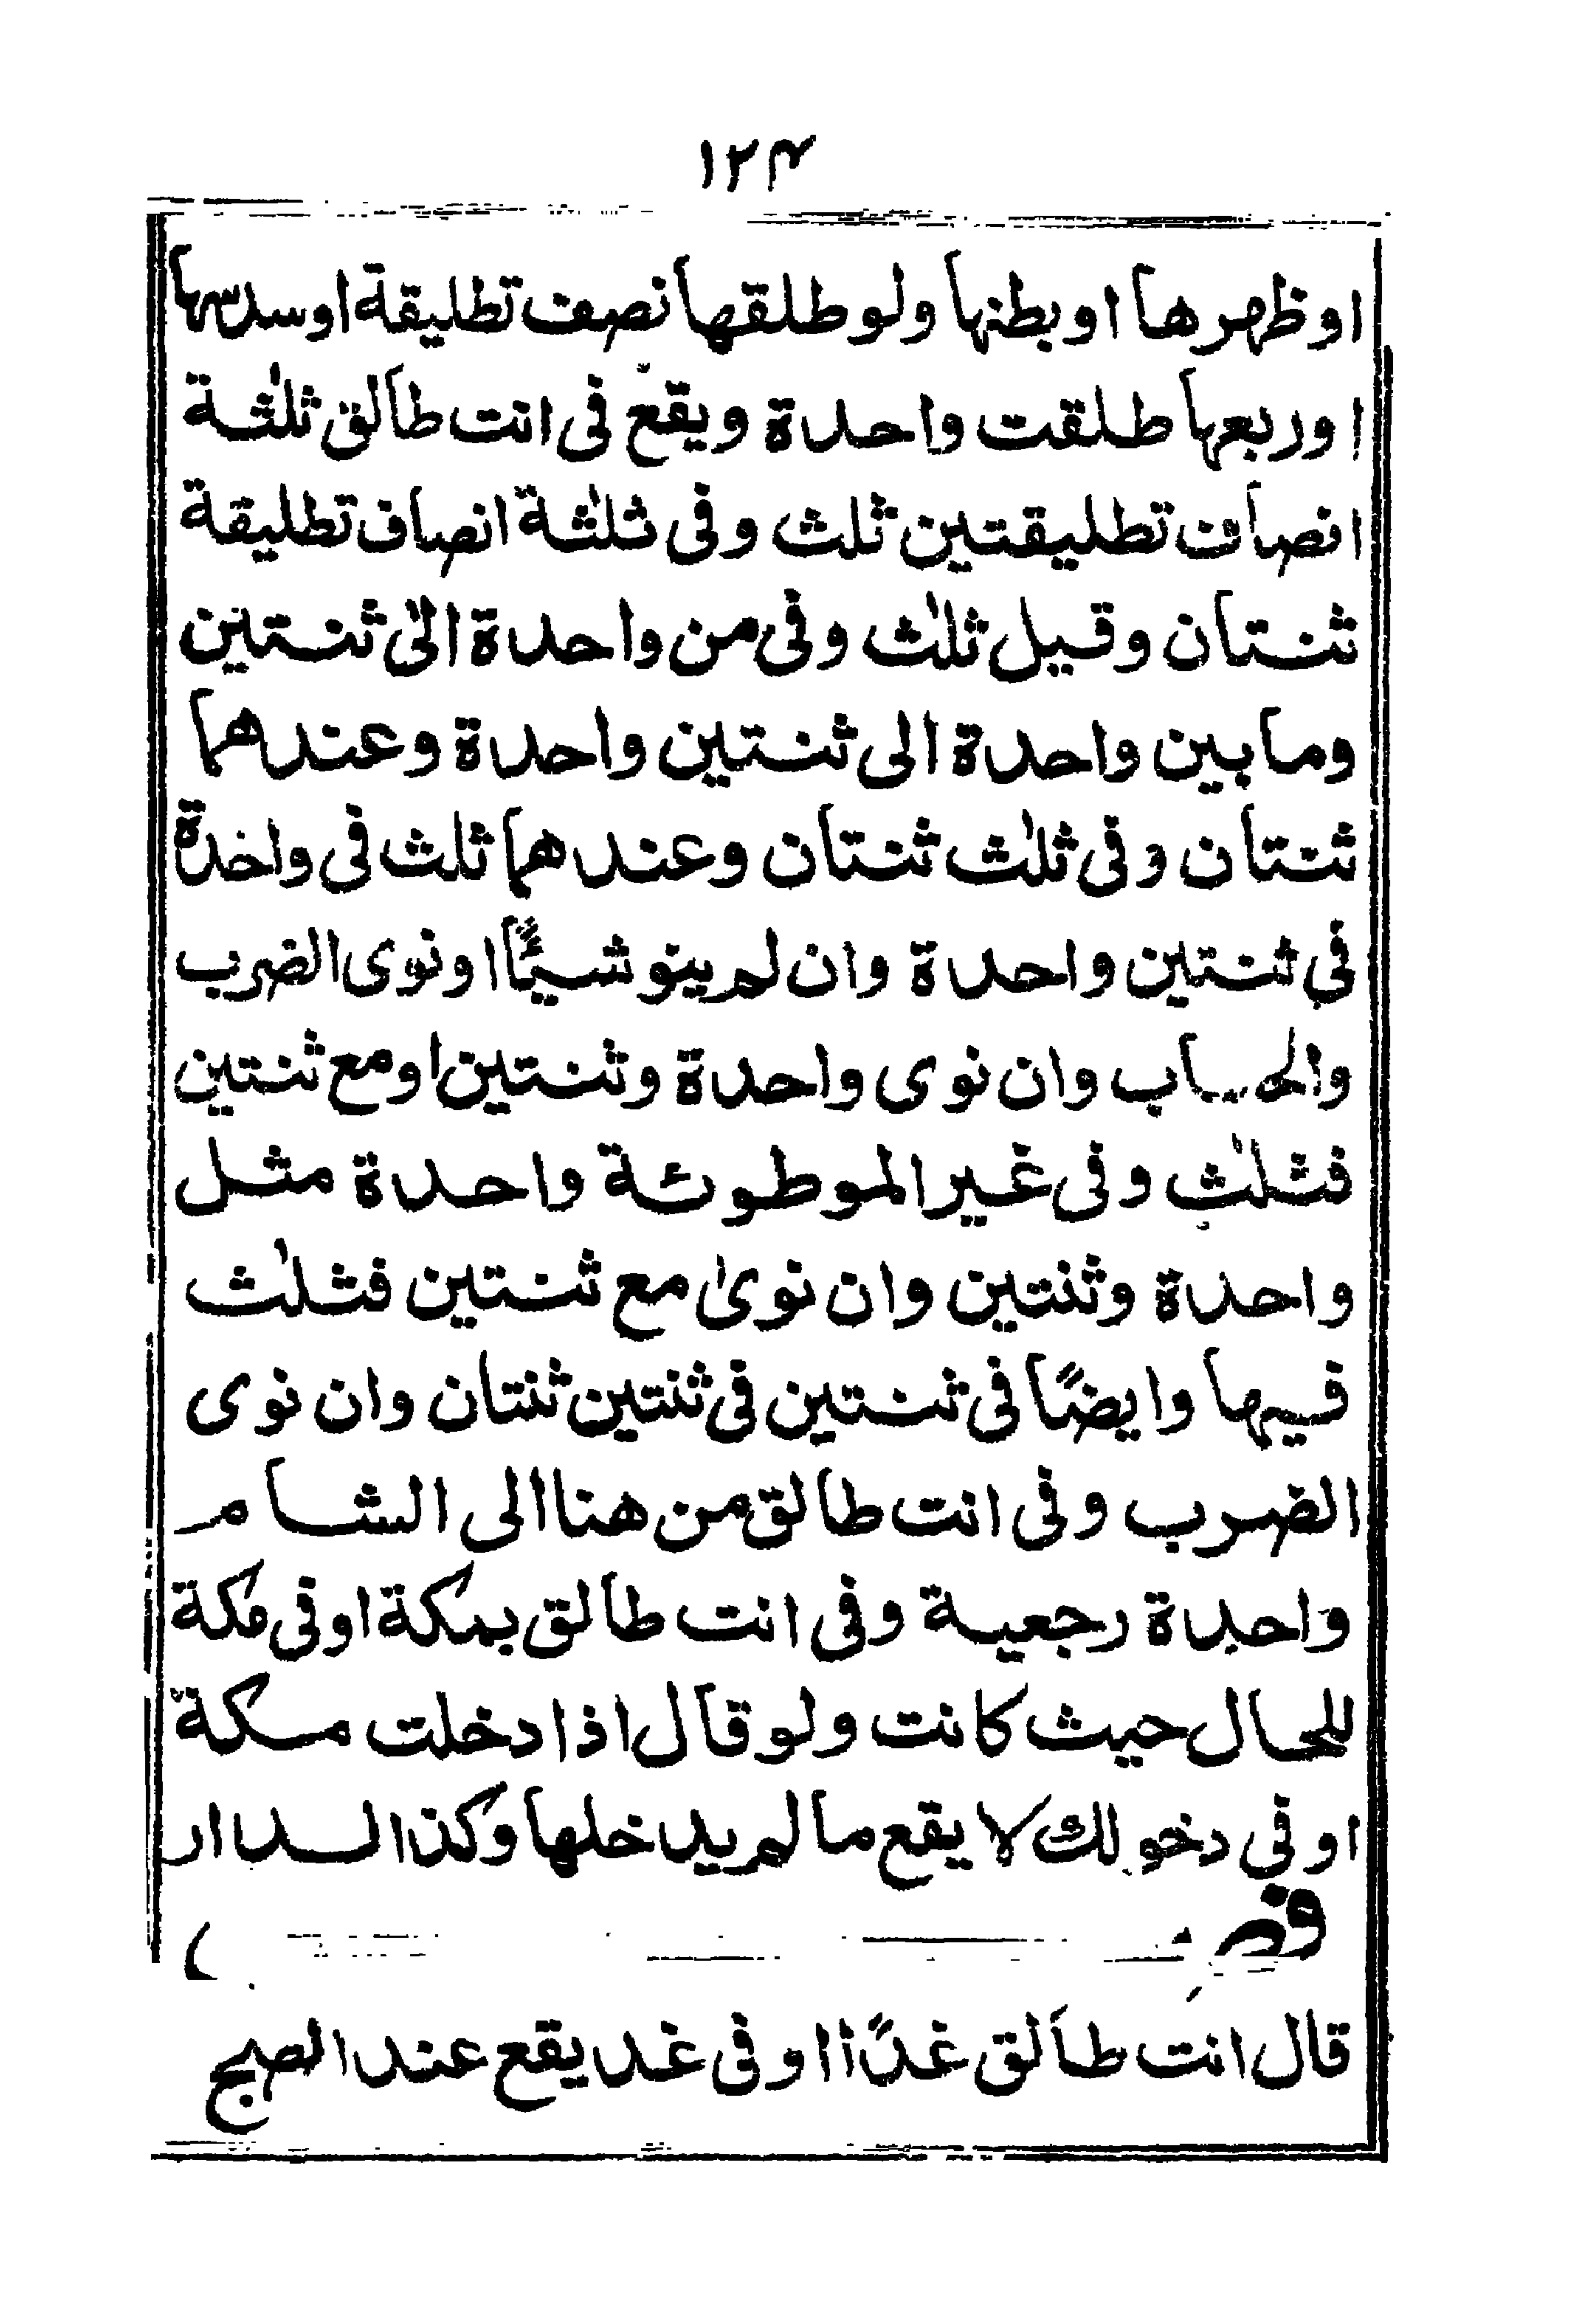 ١٢٤
اوظهرها اوبطنها ولوطلقها نصف تطليقة اوسدسها
اوربعها طلقت واحدة ويقع فى انت طالق ثلٰثة
انصاف تطليقتين ثلث وفى ثلٰثة انصاف تطليقة
ثنتان وقيل ثلٰث وفى من واحدة الىٰ ثنتين
ومابين واحدة الى ثنتين واحدة وعندهما
ثنتان وفى ثلٰث ثنتان وعندهما ثلث فى واحدة
فى ثنتين واحدة وان لم ينو شيئًا اونوى الضرب
والحساب وان نوى واحدة وثنتين اومع ثنتين
فثلٰث وفى غير الموطوئة واحدة مثل
واحدة وثنتين وان نوىٰ مع ثنتين فثلٰث
فيها وايضًا فى ثنتين فى ثنتين ثنتان وان نوى
الضرب وفى انت طالق من هنا الى الشام
واحدة رجعية وفى انت طالق بمكة اوفى مكة
للحال حيث كانت ولو قال اذا دخلت مكة
اوفى دخولك لا يقع مالم يدخلها وكذا الدار
قال انت طالق غدًا اوفى غد يقع عند الصبح